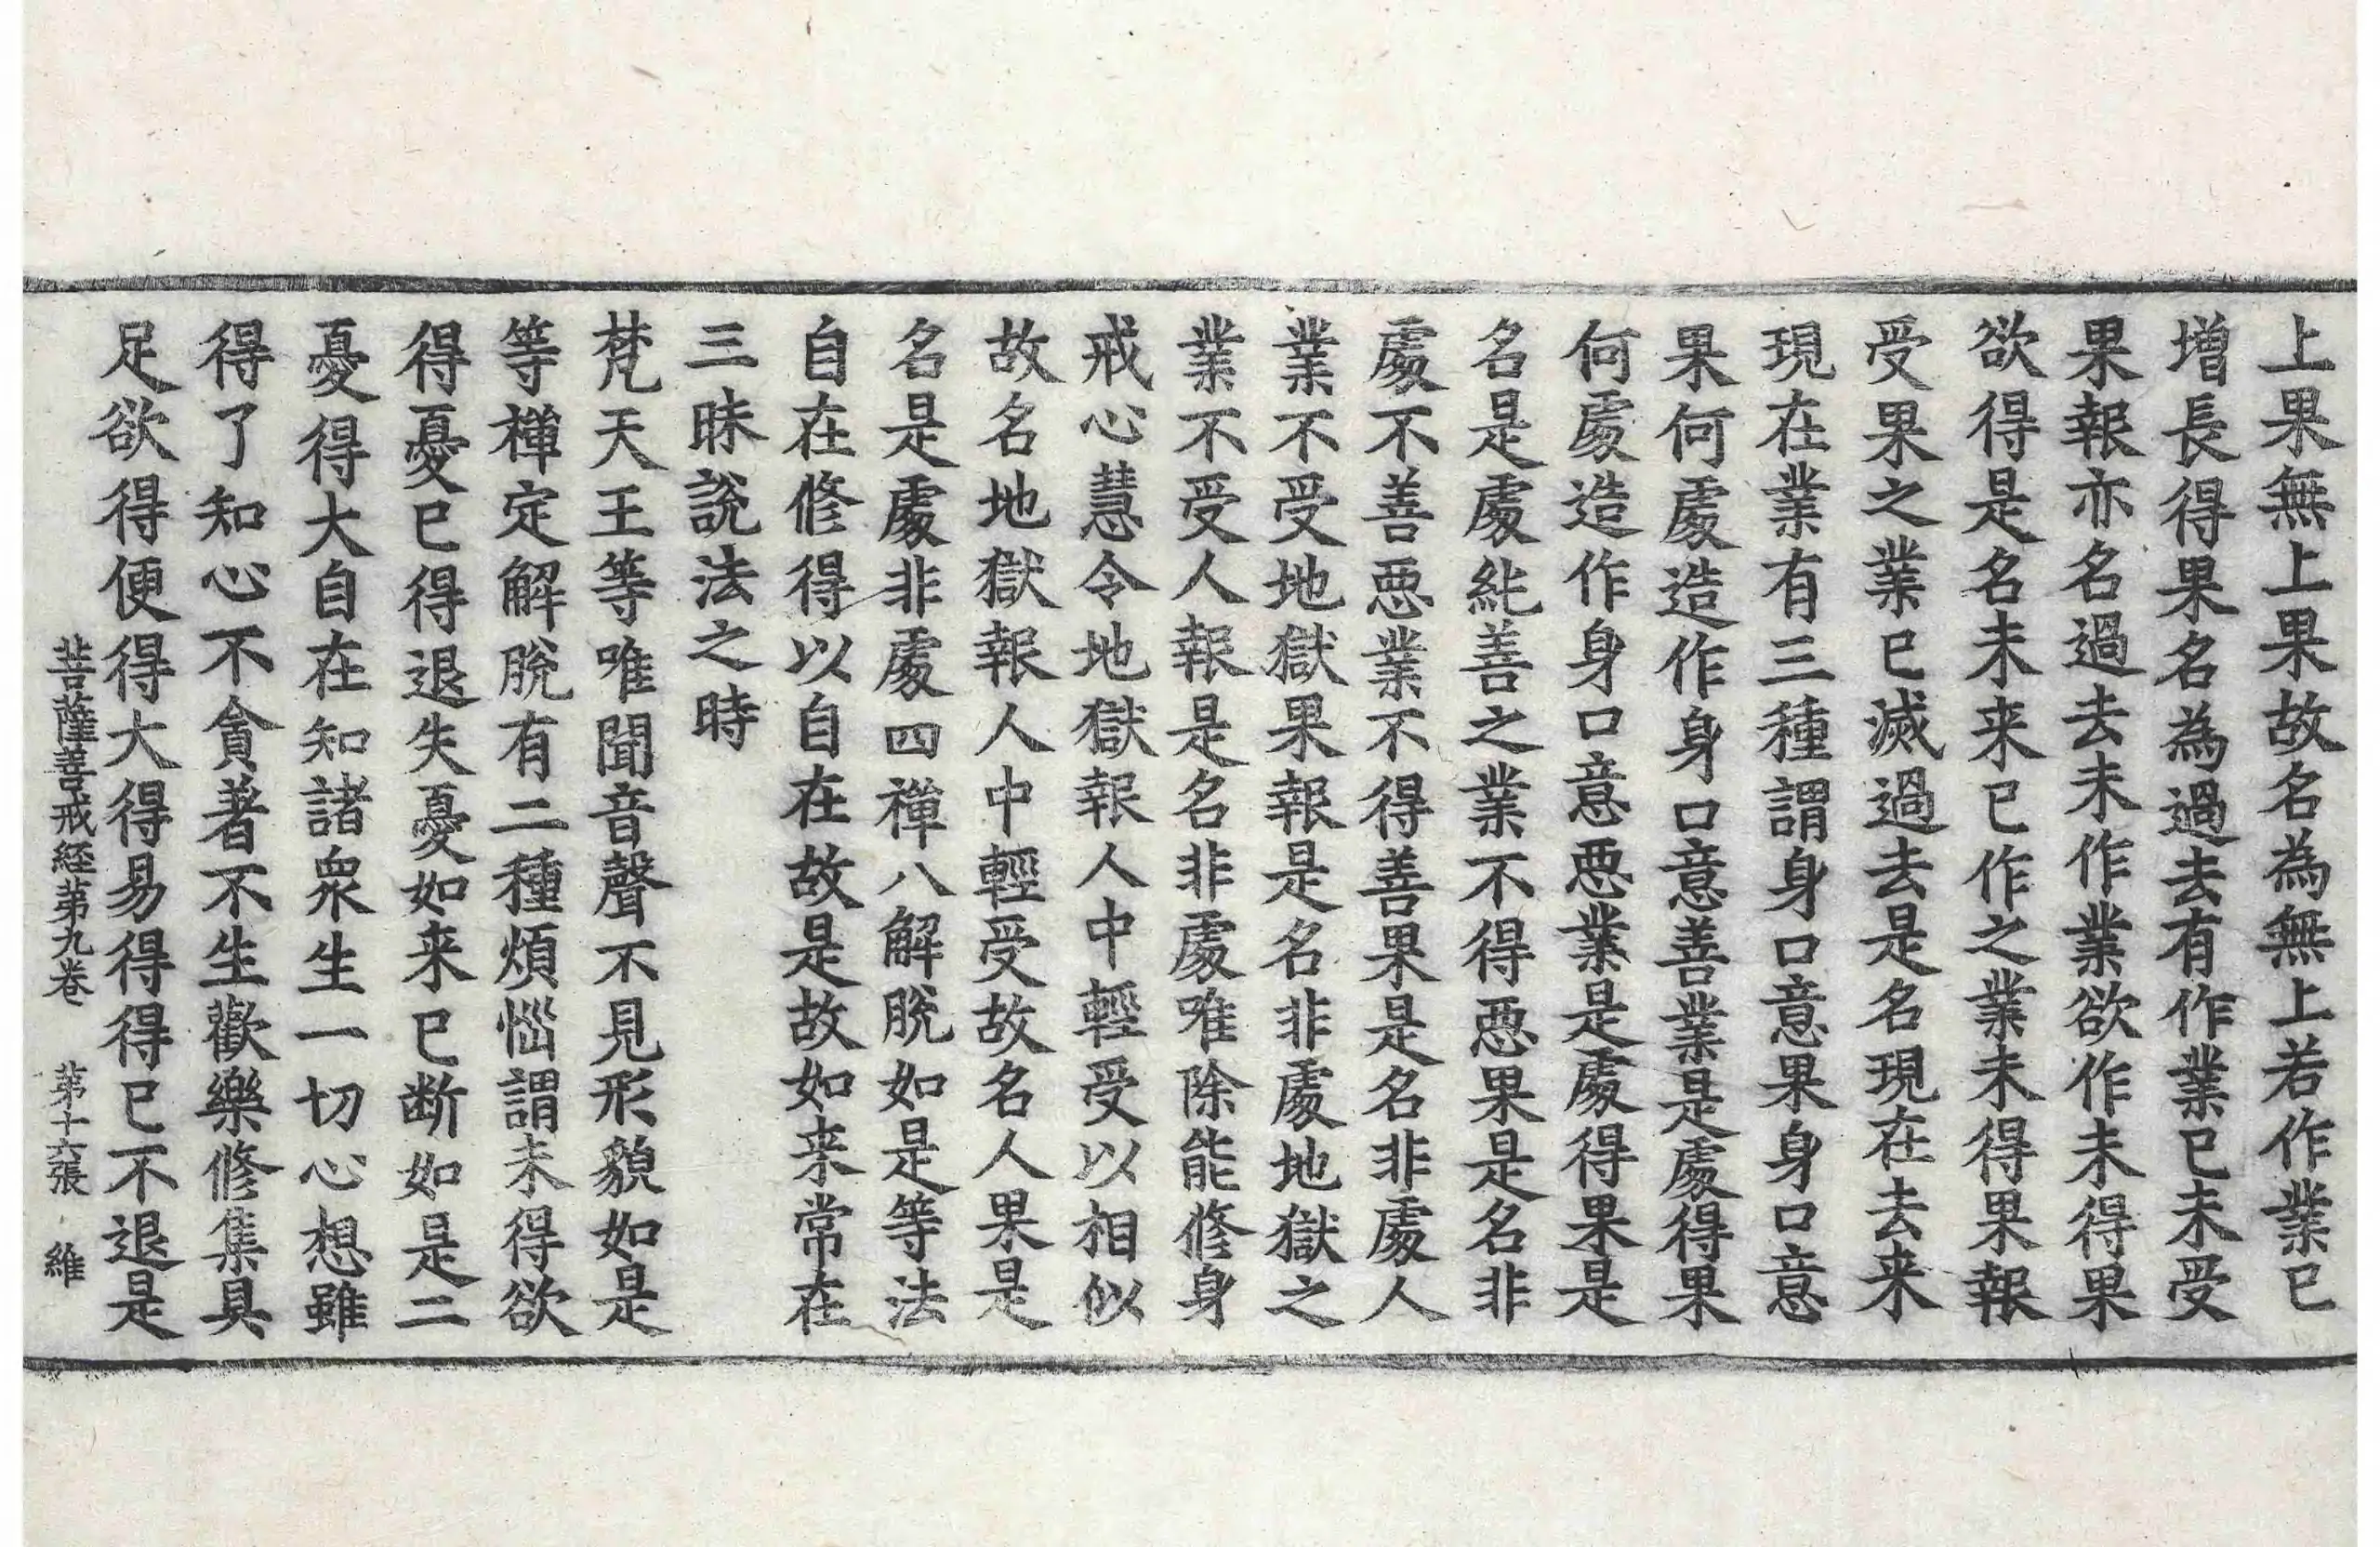 上果無上果故名為無上若作業已
增長得果名為過去有作業已未受
果報亦名過去未作業欲作未得果
欲得是名未来已作之業未得果報
受果之業已滅過去是名現在去来
現在業有三種謂身口意果身口意
果何處造作身口意善業是處得果
何處造作身口意惡業是處得果是
名是處純善之業不得惡果是名非
處不善惡業不得善果是名非處人
業不受地獄果報是名非處地獄之
業不受人報是名非處唯除能修身
戒心慧令地獄報人中輕受以相似
故名地獄報人中輕受故名人果是
名是處非處四禪八解脫如是等法
自在修得以自在故是故如来常在
三昧說法之時
梵天王等唯聞音聲不見形貌如是
等禪定解脫有二種煩惱謂未得欲
得憂已得退失憂如来已断如是二
憂得大自在知諸衆生一切心想雖
得了知心不貪著不生歡樂修集具
足欲得便得大得易得得已不退是
菩薩善戒経苐九卷 苐十六張 維